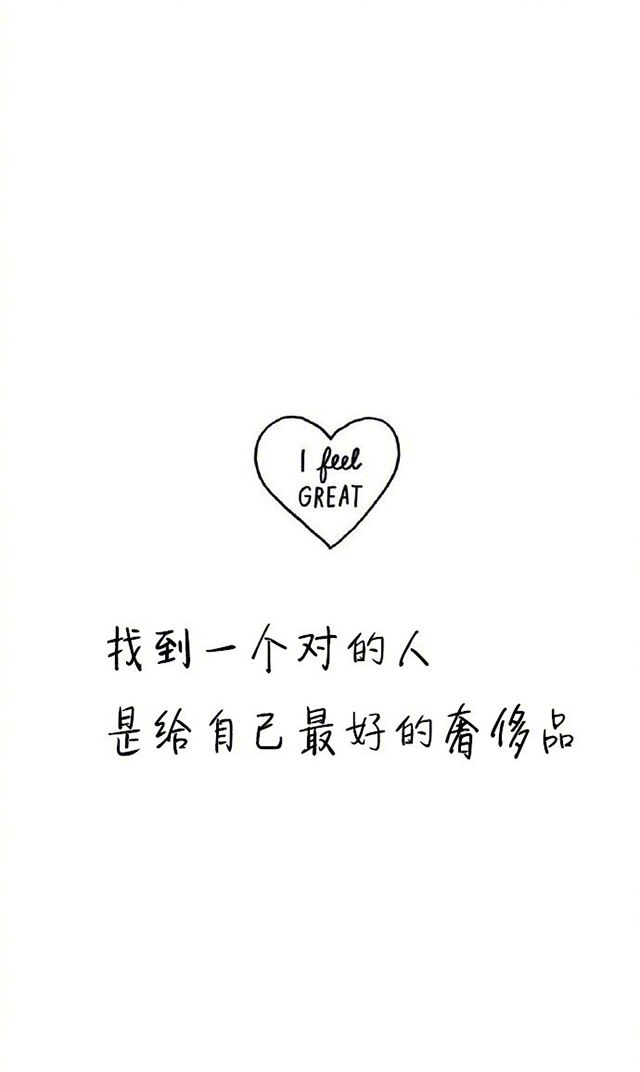 I feel
GREAT
找到一个对的人
是给自己最好的奢侈品